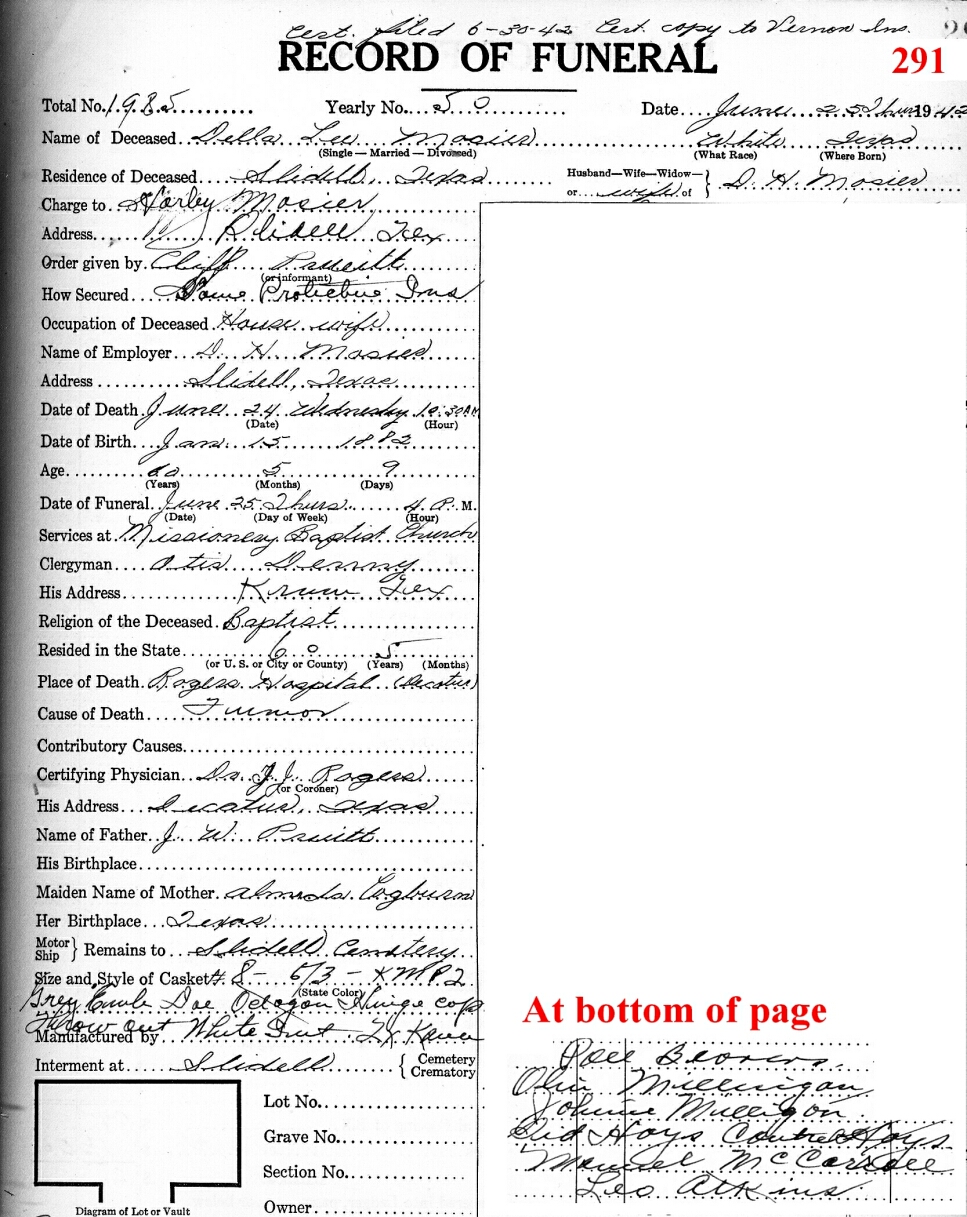 Cert. filed 6-30-42 Cert. copy to Vernon Ins.
RECORD OF FUNERAL
291
Total No. 1985 Yearly No. 50 Date June 25 Thur 1942
Name of Deceased Della Lee Mosier White Texas
(Single — Married — Divorced) (What Race) (Where Born)
Residence of Deceased Slidell, Texas Husband—Wife—Widow— or wife of } D. H. Mosier
Charge to Harley Mosier
Address Slidell Tex
Order given by Cliff Prueitt
(or informant)
How Secured Protective Ins
Occupation of Deceased House wife
Name of Employer D. H. Mosier
Address Slidell, Texas
Date of Death June 24 Wednesday 10:30 AM
(Date) (Hour)
Date of Birth Jan 15 1882
Age 60 5 9
(Years) (Months) (Days)
Date of Funeral June 25 Thurs. 4 P. M.
(Date) (Day of Week) (Hour)
Services at Missionery Baptist Church
Clergyman Otis Denny
His Address Krum Tex
Religion of the Deceased Baptist
Resided in the State 60 5
(or U. S. or City or County) (Years) (Months)
Place of Death Rogers Hospital (Decatur)
Cause of Death Tumor
Contributory Causes
Certifying Physician Dr. J. J. Rogers
(or Coroner)
His Address Decatur, Texas
Name of Father J. W. Pruitt
His Birthplace
Maiden Name of Mother Almeda Cogburn
Her Birthplace Texas
Motor Ship } Remains to Slidell Cemetery
Size and Style of Casket # 8 - 6/3 - XMP2
(State Color)
Grey Doe Octagon Hinge cap
Throw out
Manufactured by White
Interment at Slidell { Cemetery Crematory
Lot No.
Grave No.
Section No.
Owner
Diagram of Lot or Vault
At bottom of page
Pall Bearers
Olin Millingan
Johnie Milligon
Sid Hays Hays
Manuel McCarroll
Leo Atkins